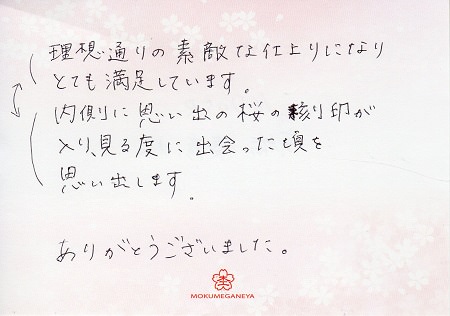 理想通りの素敵な仕上りになり
とても満足しています。
内側に思い出の桜の刻印が
入り、見る度に出会った頃を
思い出します。
ありがとうございました。
MOKUMEGANEYA